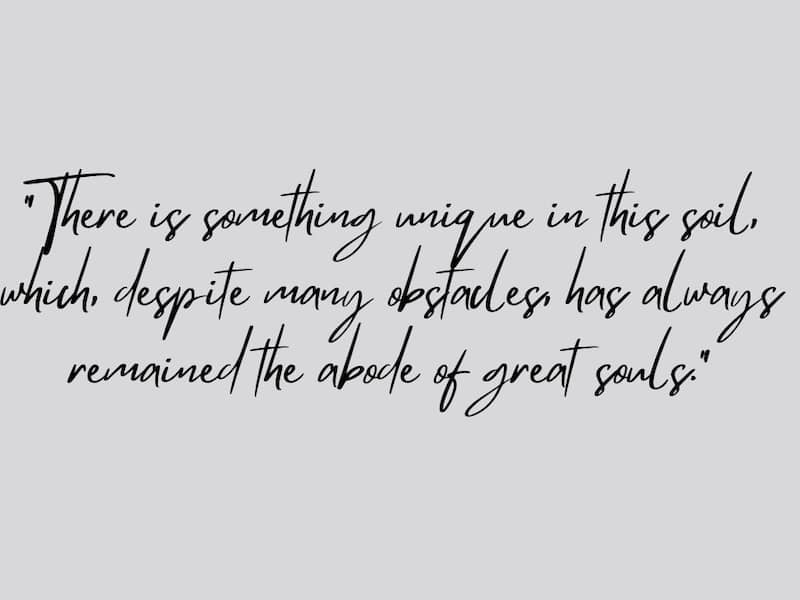 "There is something unique in this soil,
which, despite many obstacles, has always
remained the abode of great souls."